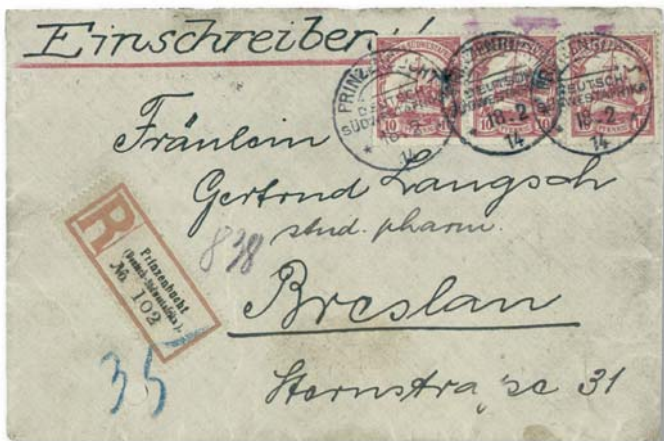 Einschreiben!
PRINZENBUCHT
DEUTSCH
SÜDWESTAFRIKA
18.2
14
DEUTSCH
SÜDWESTAFRIKA
18.2
14
DEUTSCH
SÜDWESTAFRIKA
18.2
14
10 10 10
Fräulein
Gertrud Langsch
stud. pharm.
838
Breslau
Sternstrasse 31
R
Prinzenbucht
(Deutsch-Südwestafrika).
No 102
35